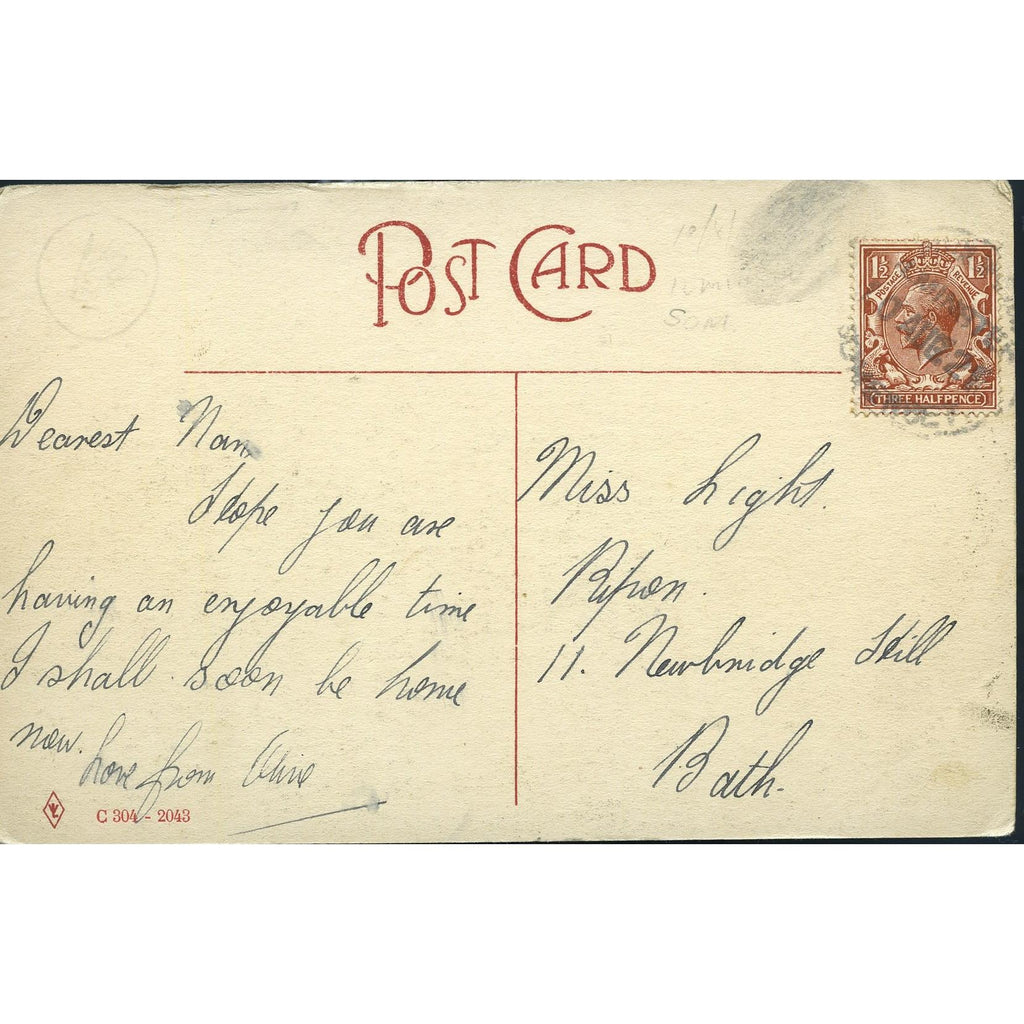 POST CARD
1½ 1½
POSTAGE REVENUE
THREE HALFPENCE
Dearest Nan,
Hope you are
having an enjoyable time
I shall soon be home
now.
Love from Olive
Miss Light.
Ripon.
11. Newbridge Hill
Bath.
C 304 - 2043